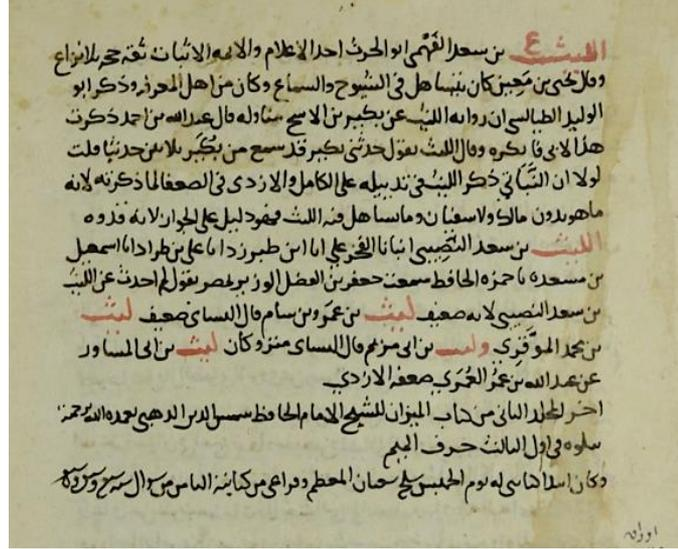 الليث ع بن سعد الفهمى ابو الحرث احد الاعلام والائمه الاثبات ثقه حجه بلا نزاع
وقال يحيى بن معين كان يتساهل فى الشيوخ والسماع وكان من اهل المعرفه وذكر ابو
الوليد الطيالسى ان روايه الليث عن بكير بن الاشج مناوله قال عبد الله بن احمد ذكرت
هذا لابى فانكره وقال الليث يقول حدثنى بكير قد سمع من بكير ثلاثين حديثا قلت
لولا ان النباتي ذكر الليث فى تذييله على الكامل والازدى فى الضعفا لما ذكرته لانه
ما هو بدون مالك ولا سفيان وما تساهل فيه الليث فهو دليل على الجواز لانه قدوه
الليث بن سعد النصيبى انبانا الفخر علي انا ابن طبرزد انا على بن طراد انا اسمعيل
بن مسعده نا حمزه الحافظ سمعت جعفر بن الفضل الوزير بمصر يقول لم احدث عن الليث
بن سعد النصيبى لانه ضعيف ليث بن عمرو بن سام قال النساى ضعيف ليث
بن محمد الموقري وليث بن ابى مريم قال النساى متروكان ليث بن ابى المساور
عن عبد الله بن عمر العمرى ضعفه الازدي
اخر المجلد الثانى من كتاب الميزان للشيخ الامام الحافظ شمس الدين الذهبى تغمده الله برحمته
يتلوه فى اول الثالث حرف الميم
وكان ابتدا له يوم الخميس سلخ شعبان المعظم وفراغى من كتابته الثامن من شوال سنه
اوراق